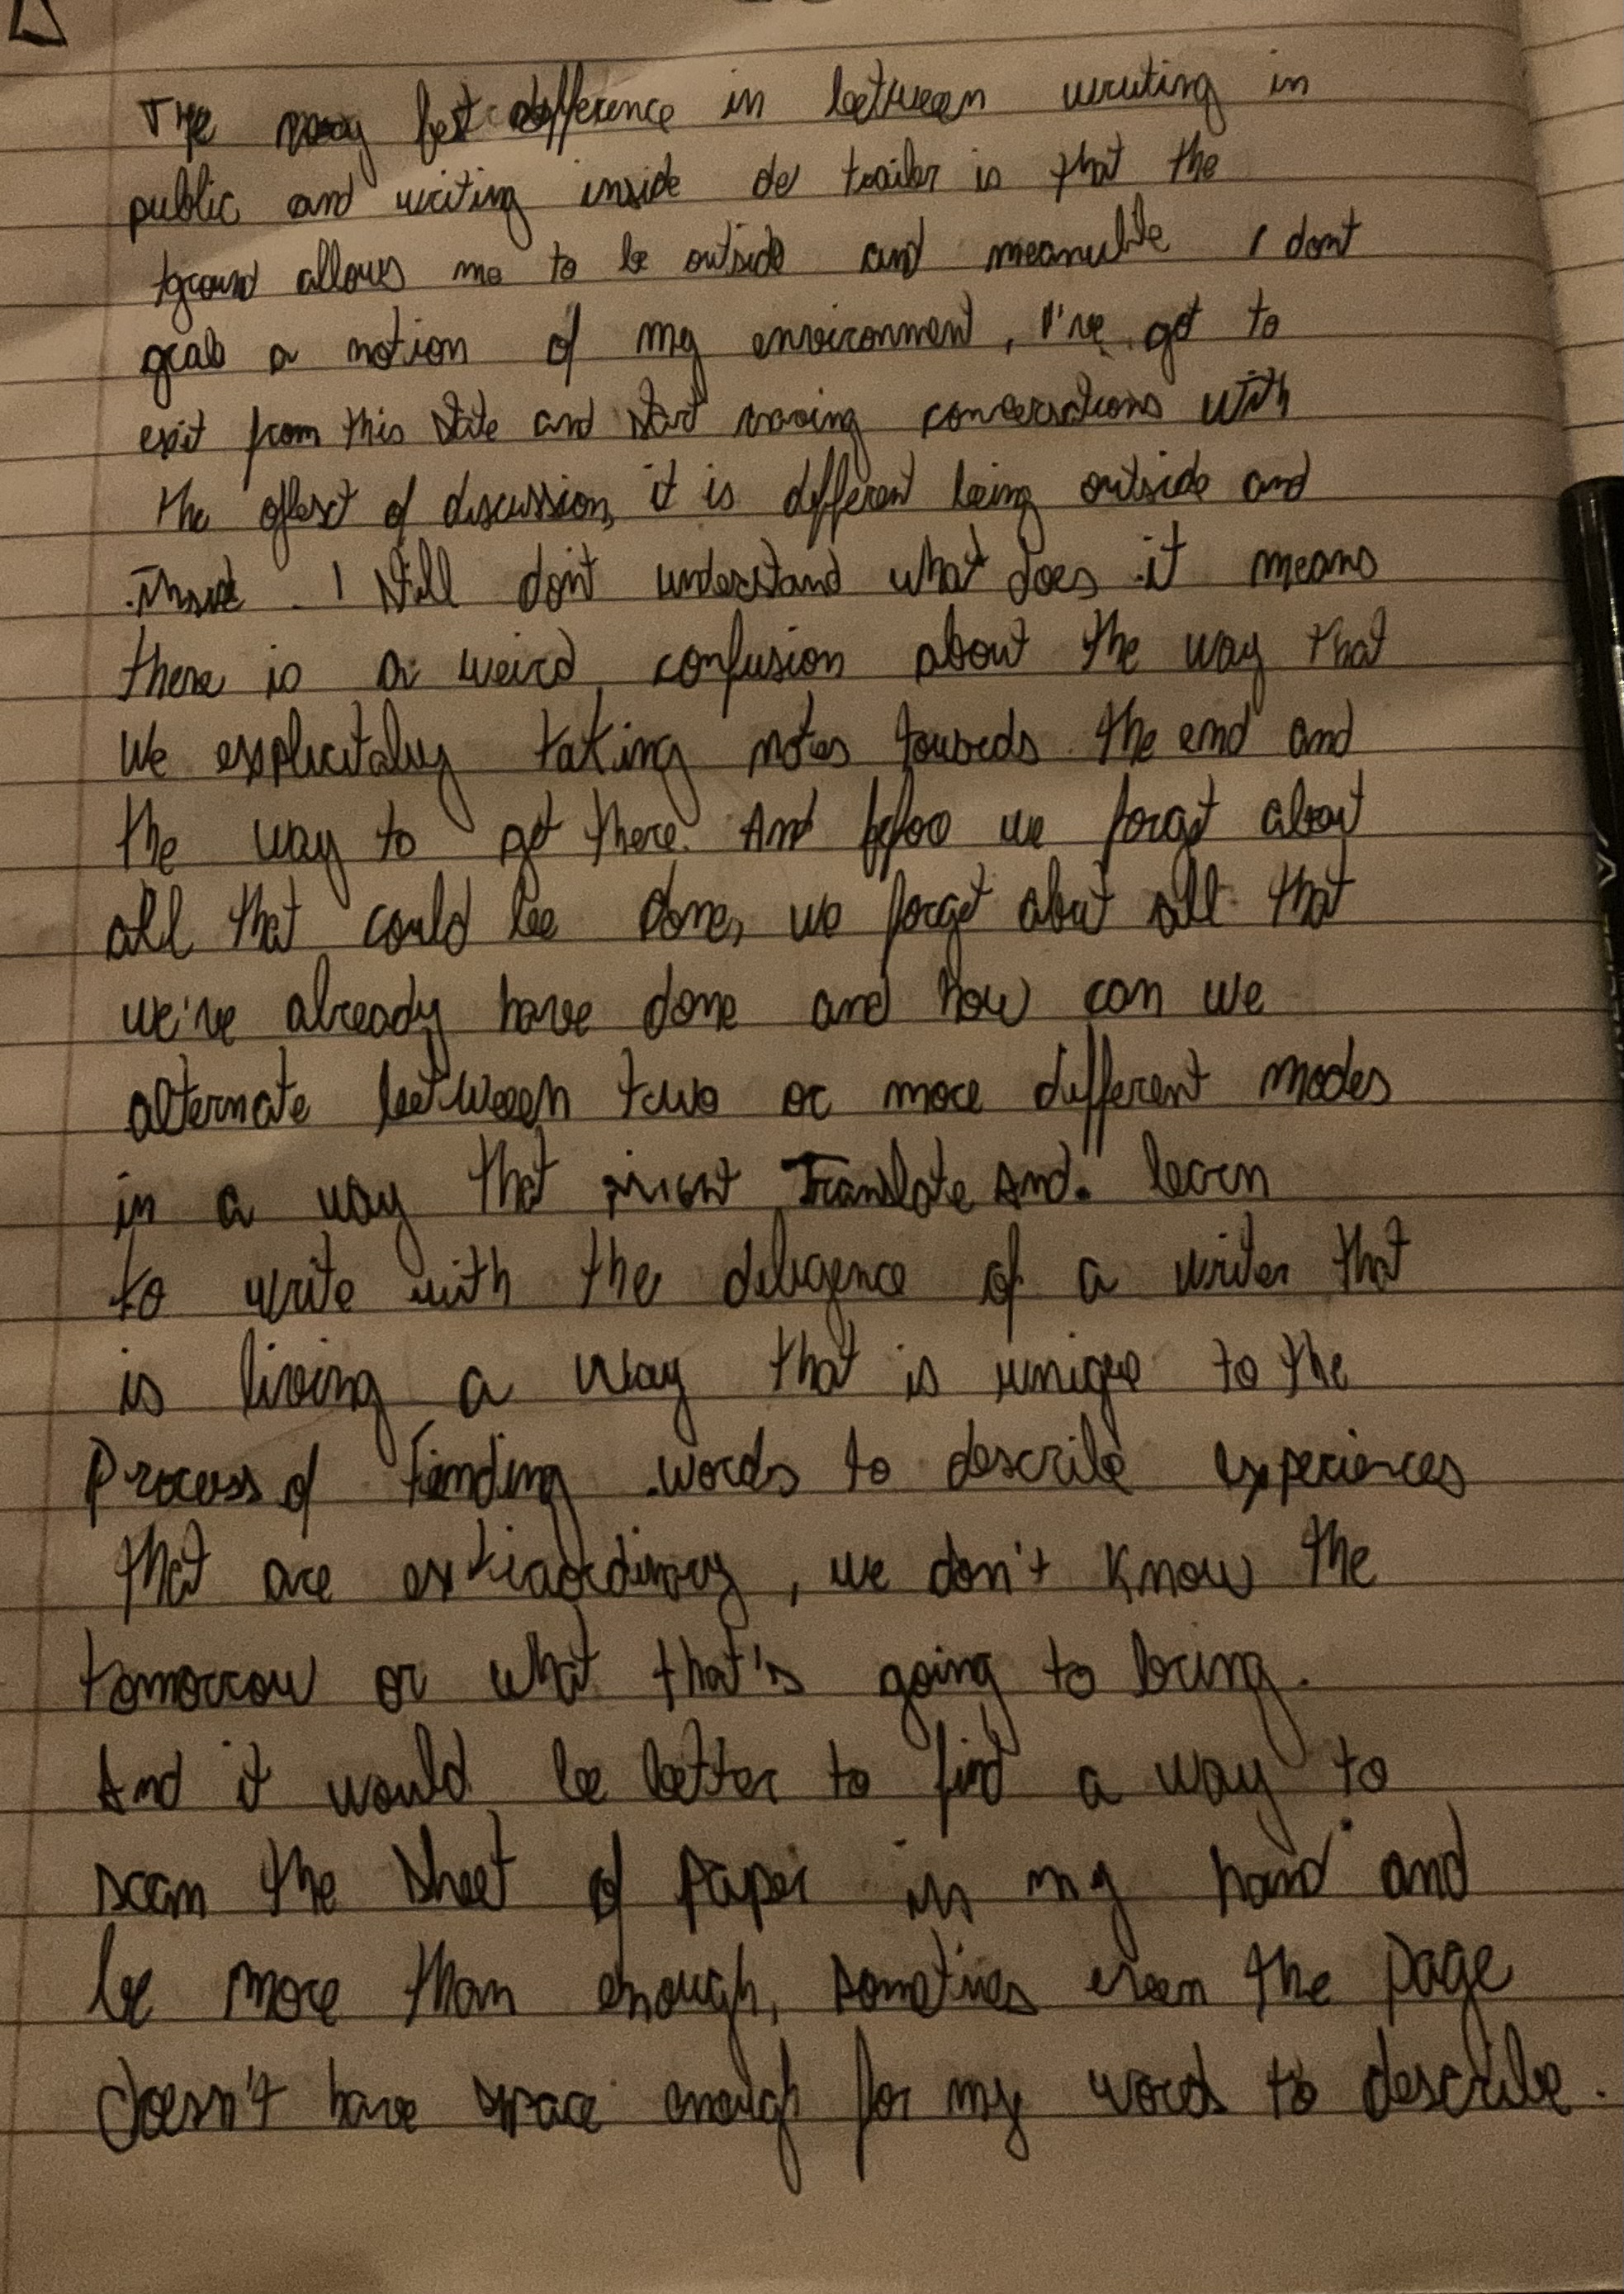 The very difference in between writing in
public and writing inside de trailer is that the
allows me to be outside and I dont
grab a notion of my environment, I've got to
exit from this state and start having conversations with
the of discussion, it is different being outside and
inside. I still don't understand what does it means
there is a weird confusion about the way that
we explicitaly taking notes towards the end and
the way to get there. And before we forget about
all that could be done, we forget about all that
we've already have done and how can we
alternate between two or more different modes
in a way that might translate and. learn
to write with the diligence of a writer that
is living a way that is unique to the
Process of Finding words to describe experiences
that are extraordinary, we don't know the
tomorrow or what that's going to bring.
And it would be better to find a way to
scan the sheet of paper in my hand and
be more than enough, sometimes even the page
doesn't have space enough for my words to describe.